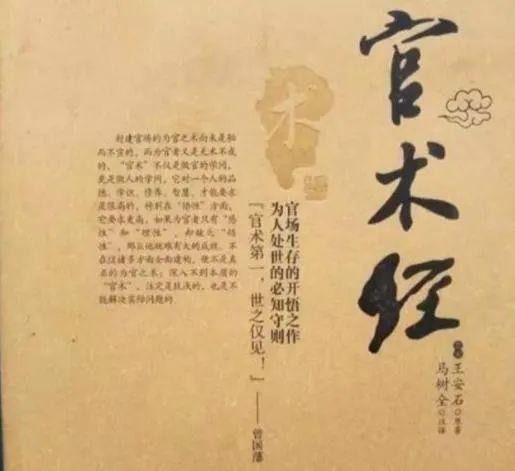 官术经
宋·王安石◎原著
马树全◎注译
官场生存的开悟之作
为人处世的必知守则
『官术第一，世之仅见！』——曾国藩
术
封建官场的为官之术向来是秘
而不宣的，而为官者又是无术不成
的，“官术”不仅是做官的学问，
更是做人的学问，它对一个人的品
德、学识、修养、智慧、才能要求
是很高的，特别在“悟性”方面，
它要求更高，如果为官者只有“感
性”和“理性”，却缺乏“悟
性”，那么他就难有大的成就。不
在这诸多方面全面建构，便不是真
正的为官之术；深入不到本质的
“官术”，注定是肤浅的，也是不
能解决实际问题的